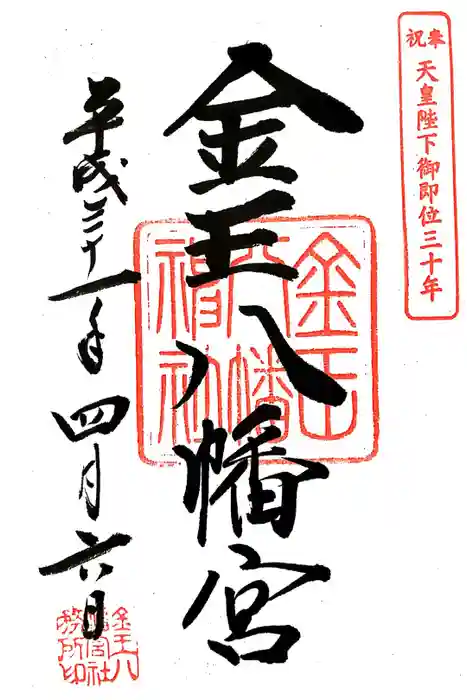 奉祝
天皇陛下御即位三十年
金王八幡宮
平成三十一年
四月六日
金王八
幡宮社
務所印